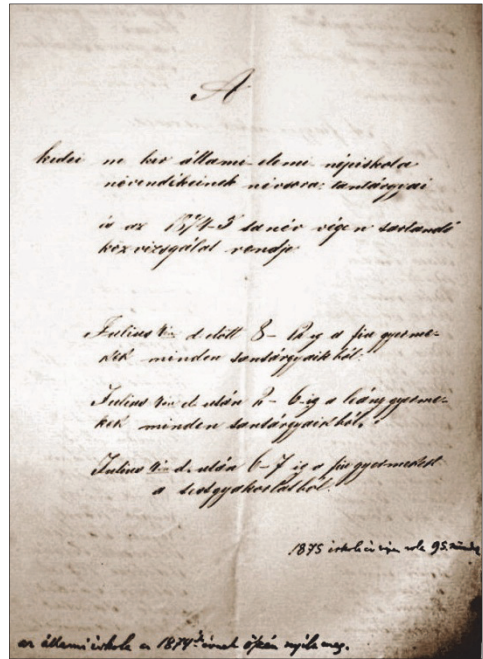 A
kedei m kir állami elemi népiskola
növendékeinek névsora: tantárgyai
és az 1874-5 tanév végén tartandó
közvizsgálat rendje
Julius d. előtt 8 - 12 ig a fiu gyerme-
kek minden tantárgyaikból.
Julius d. után 2 - 6-ig a leány gyerme-
kek minden tantárgyaikból.
Julius d. után 6-7 ig a fiu gyermekek
a testgyakorlatból.
1875 iskolaév
az állami iskola 1874 évnek őszén nyílt meg.